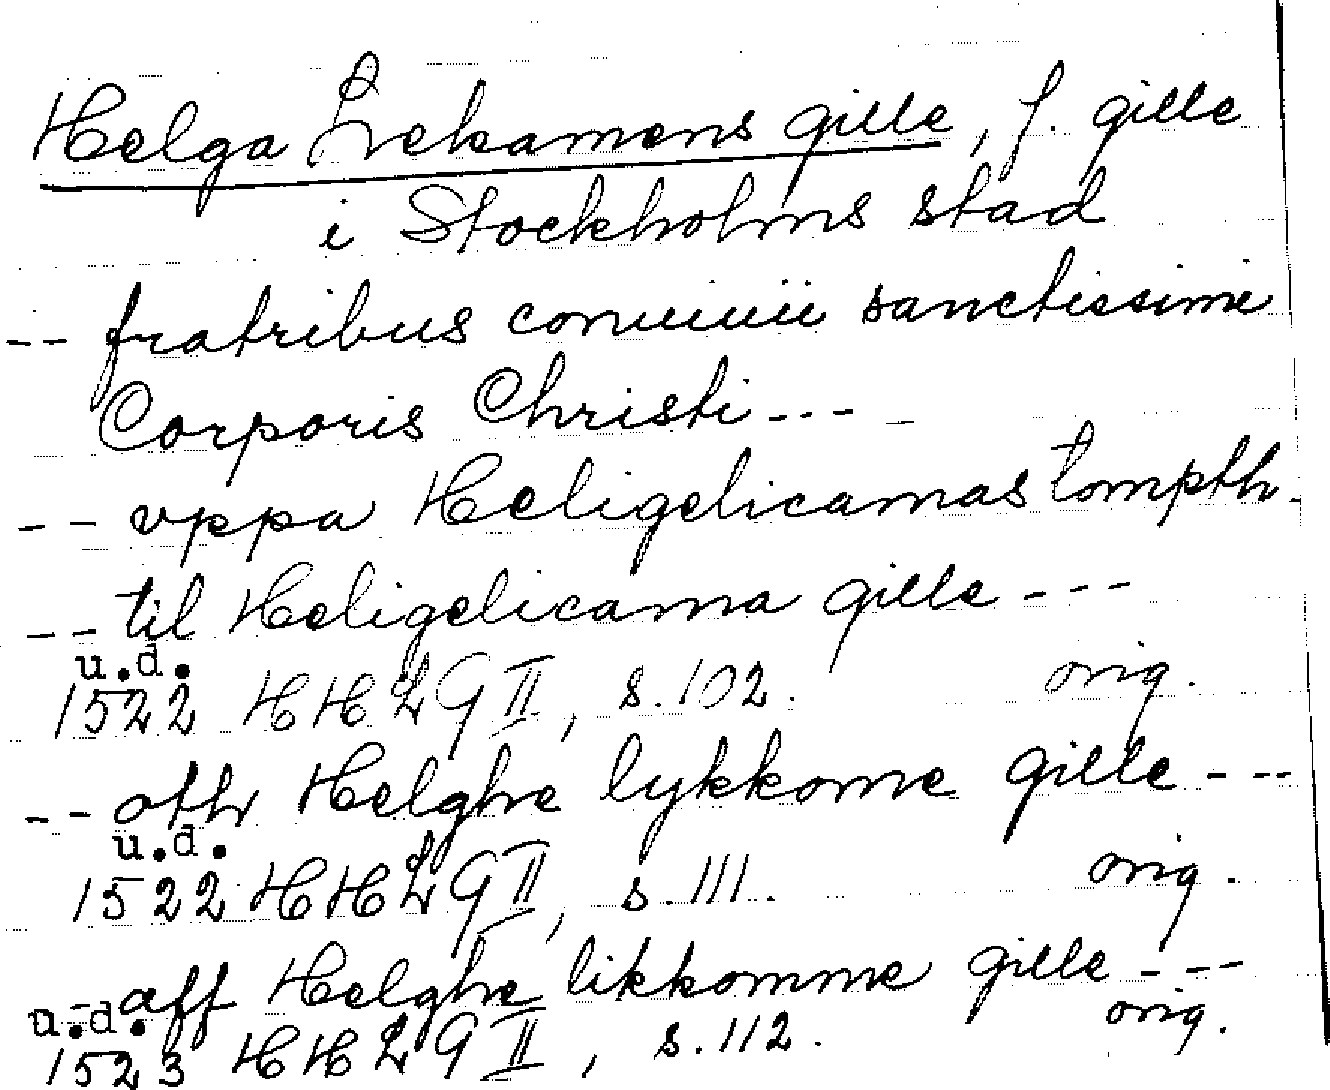 Helga Lekamens gille, f. gille
i Stockholms stad
-- fratribus conuiuii sanctissimi
Corporis Christi ---
-- vppa Heligelicamas tompth-
-- til Heligelicama gille ---
u.d.
1522 HHLG II, s. 102. orig.
-- oth Helghe lykkome gille ---
u.d.
1522 HHLG II, s. 111. orig.
-- aff Helghe likkomme gille ---
u.d.
1523 HHLG II, s. 112. orig.